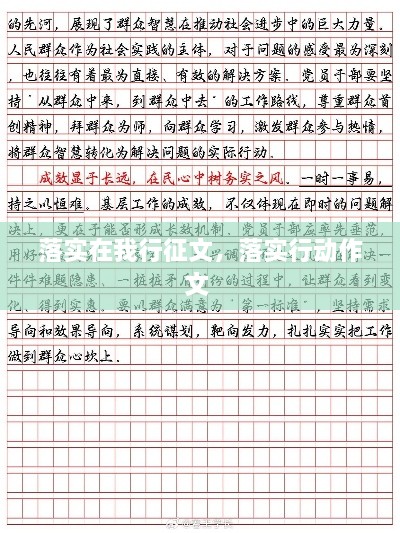 的先河，展现了群众智慧在推动社会进步中的巨大力量。
人民群众作为社会实践的主体，对于问题的感受最为深刻
，也往往有着最为直接、有效的解决方案。党员干部要坚
持“从群众中来，到群众中去”的工作路线，尊重群众首
创精神，拜群众为师，向群众学习，激发群众参与热情，
将群众智慧转化为解决问题的实际行动。
成效显于长远，在民心中树务实之风。一时一事易，
持之以恒难。基层工作的成效，不仅体现在即时的问题解
决上，更在于能否形成长效机制。党员干部应率先垂范，
落实在我行征文，落实行动作文
件件难题隐患、一桩桩矛盾纠纷的过程中，让群众看到变
化、得到实惠。要以群众满意为“第一标准”，坚持需求
导向和效果导向，系统谋划，靶向发力，扎扎实实把工作
做到群众心坎上。